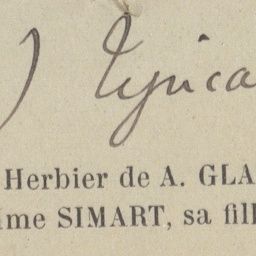 ) Lyrica
Herbier de A. GLA
me SIMART, sa fill